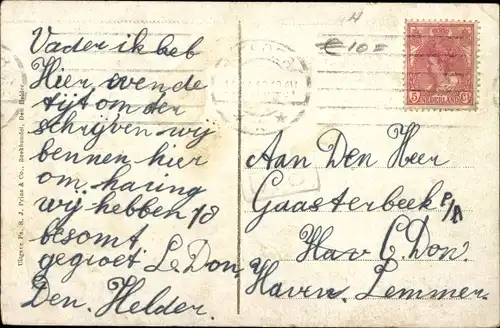 Vader ik heb
Hier even de
tijt om der
schrijven wij
bennen hier
om haring
wij hebben 18
besomt
gegroet L. Don,
Den. Helder.
Uitgave Fa. S. J. Prins & Co., Boekhandel, Den Helder
€ 10=
5 NEDERLAND Ct
Aan Den Heer
Gaasterbeek P/A
Hav C. Don.
Haven. Lemmer.